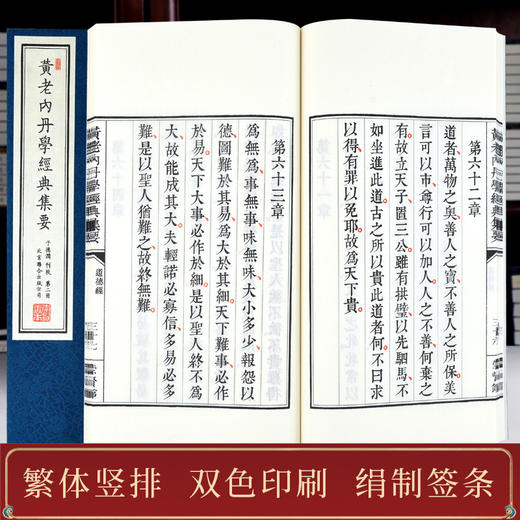 黃老內丹學經典集要
于德潤 刊校 第二冊
北京聯合出版公司
第六十二章
道者萬物之奧善人之寶不善人之所保美
言可以市尊行可以加人人之不善何棄之
有故立天子置三公雖有拱璧以先駟馬不
如坐進此道古之所以貴此道者何不曰求
以得有罪以免耶故爲天下貴
第六十三章
爲無爲事無事味無味大小多少報怨以
德圖難於其易爲大於其細天下難事必作
於易天下大事必作於細是以聖人終不爲
大故能成其大夫輕諾必寡信多易必多
難是以聖人猶難之故終無難
道德經
繁体竖排 双色印刷 绢制签条